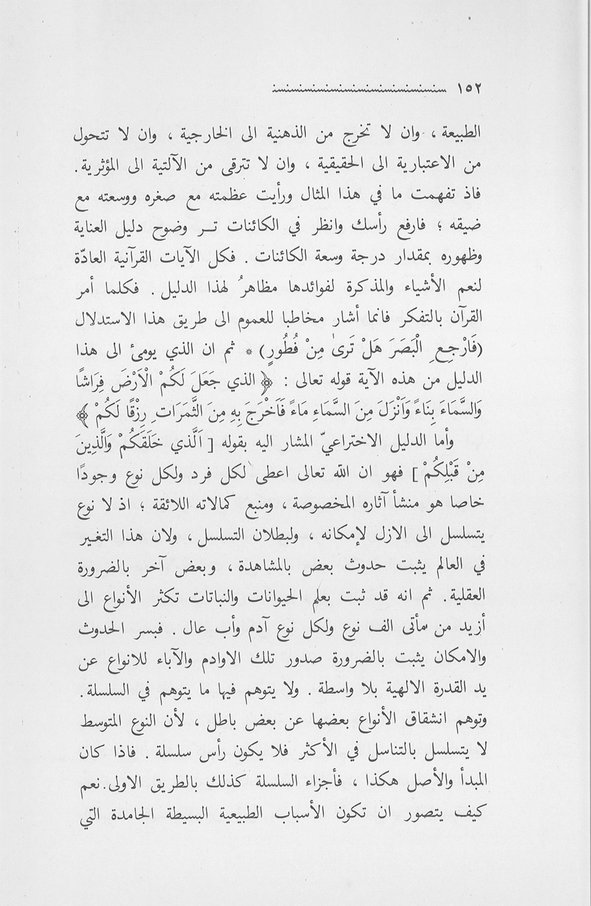 ١٥٢
الطبيعة ، وان لا تخرج من الذهنية الى الخارجية ، وان لا تتحول
من الاعتبارية الى الحقيقية ، وان لا تترقى من الآلتية الى المؤثرية .
فاذ تفهمت ما في هذا المثال ورأيت عظمته مع صغره ووسعته مع
ضيقه ؛ فارفع رأسك وانظر في الكائنات تــر وضوح دليل العناية
وظهوره بمقدار درجة وسعة الكائنات . فكل الآيات القرآنية العادّة
لنعم الأشياء والمذكرة لفوائدها مظاهرُ لهذا الدليل . فكلما أمر
القرآن بالتفكر فانما أشار مخاطبا للعموم الى طريق هذا الاستدلال
(فَارْجِعِ الْبَصَرَ هَلْ تَرىٰ مِنْ فُطُورٍ) * ثم ان الذي يومئ الى هذا
الدليل من هذه الآية قوله تعالى : ﴿ الذي جَعَلَ لَكُمْ الْاَرْضَ فِرَاشًا
وَالسَّمَاءَ بِنَاءً وَاَنْزَلَ مِنَ السَّمَاءِ مَاءً فَاَخْرَجَ بِهِ مِنَ الثَّمَرَاتِ رِزْقًا لَكُمْ ﴾
وأما الدليل الاختراعيّ المشار اليه بقوله [ اَلَّذي خَلَقَكُمْ وَالَّذِينَ
مِنْ قَبْلِكُمْ ] فهو ان الله تعالى اعطى لكل فرد ولكل نوع وجودًا
خاصا هو منشأ آثاره المخصوصة ، ومنبع كمالاته اللائقة ؛ اذ لا نوع
يتسلسل الى الازل لإمكانه ، ولبطلان التسلسل ، ولان هذا التغير
في العالم يثبت حدوث بعض بالمشاهدة ، وبعض آخر بالضرورة
العقلية . ثم انه قد ثبت بعلم الحيوانات والنباتات تكثر الأنواع الى
أزيد من مأتى الف نوع ولكل نوع آدم وأب عال . فبسر الحدوث
والامكان يثبت بالضرورة صدور تلك الاوادم والآباء للانواع عن
يد القدرة الالهية بلا واسطة . ولا يتوهم فيها ما يتوهم في السلسلة .
وتوهم انشقاق الأنواع بعضها عن بعض باطل ، لأن النوع المتوسط
لا يتسلسل بالتناسل في الأكثر فلا يكون رأس سلسلة . فاذا كان
المبدأ والأصل هكذا ، فأجزاء السلسلة كذلك بالطريق الاولى . نعم
كيف يتصور ان تكون الأسباب الطبيعية البسيطة الجامدة التي